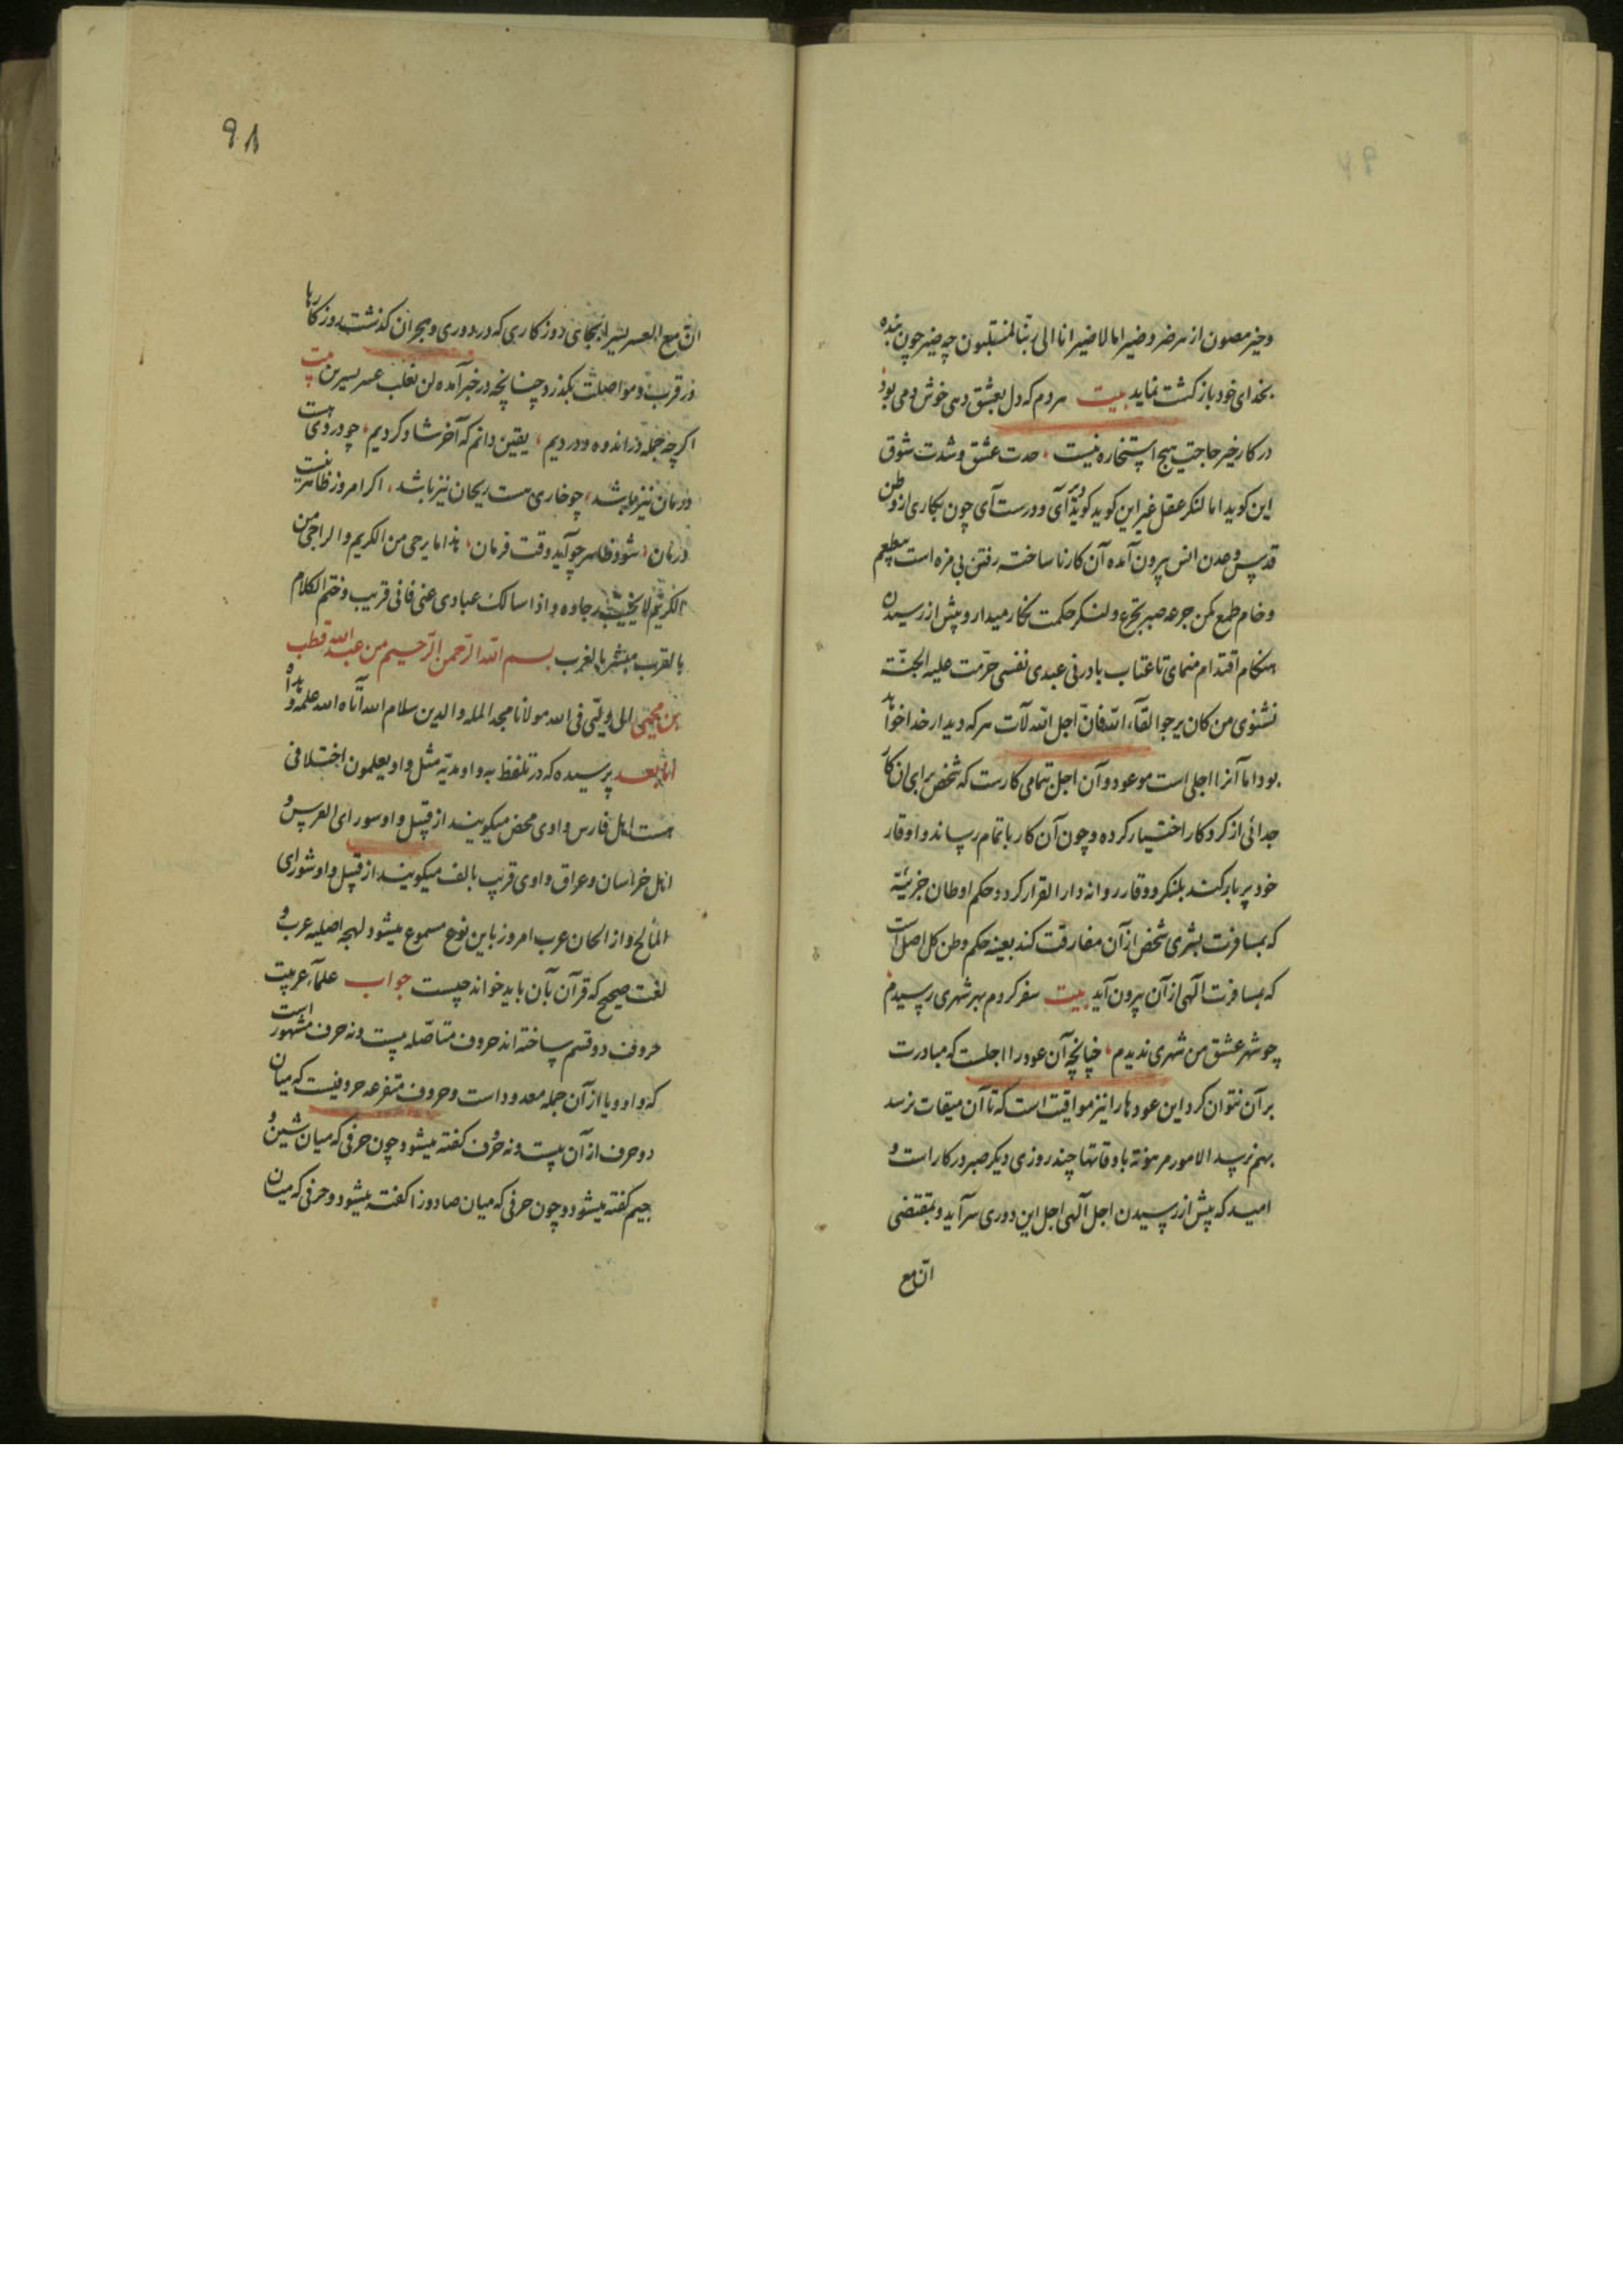 وخیر مصون از هر ضر و ضیر اما لا ضیر انا الی ربنا لمنقلبون چه ضیر چون بنده
بخدای خود بازگشت نماید بیت هر دم که دل بعشق دهی خوش دمی بود
در کار خیر حاجت هیچ استخاره نیست حدت عشق و شدت شوق
این کوید اما لنکر عقل غیر این کوید کوید دیر آی و درست آی چون بکاری از وطن
قدس و عدن انس بیرون آمده آن کار ناساخته رفتن بی مزه است
و خام طمع مکن جرعه صبر تجرع و لنکر حکمت نکار میدار و پیش از رسیدن
هنکام اقتدام منمای تا عتاب بادرنی عبدی نفسی حرمت علیه الجنة
نشنوی من کان یرجوا لقآء الله فان اجل الله لآت هر که دیدار خدا خواهد
بود اما آنرا اجلی است موعود و آن اجل تمامی کارست که شخص برای ان کار
جدائی از کرد کار اختیار کرده و چون آن کار باتمام رساند و اوقار
خود پر بار کند بلنکر و وقار روانه دار القرار کردد و حکم اوطان جزئیه
که بمسافرت بشری شخص از آن مفارقت کند بعینه حکم وطن کل اصل است
که بمسافرت الهی از آن بیرون آید بیت سفر کردم بهر شهری رسیدم
چو شهر عشق من شهری ندیدم چنانچه آن عود را اجلست که مبادرت
بر آن نتوان کرد این عودها را نیز مواقیت است که تا آن میقات نرسد
بهم نرسد الامور مرهونة باوقاتها چند روزی دیکر صبر در کار است و
امید که پیش از رسیدن اجل آلهی اجل این دوری سر آید و بمقتضی
ان مع
۹۸
ان مع العسر یسرا بجای روزکاری که در دوری و هجران کذشت روزکارها
در قرب و مواصلت بکذرد چنانچه در خبر آمده لن یغلب عسر یسرین بیت
اکر چه جمله در اندوه و دردیم یقین دانم که آخر شاد کردیم چو دردی هست
درمان نیز باشد چو خاری هست ریحان نیز باشد اکر امروز ظاهر نیست
درمان شود ظاهر چو آید وقت فرمان هذا ما یرجی من الکریم والراجی من
الکریم لا یخیب رجاوه و اذا سالک عبادی عنی فانی قریب و ختم الکلام
بالقرب مبشر بالقرب بسم الله الرحمن الرحیم من عبد الله قطب
بن محیی الی ولیی فی الله مولانا مجد الملة والدین سلام الله آتاه الله علمه و هداه
اما بعد پرسیده که در تلفظ به واو مدیّه مثل واو یعلمون اختلافی
هست اهل فارس واوی محض میکویند از قبیل واو سورای العرس و
اهل خراسان و عراق واوی قریب بالف میکویند از قبیل واو شورای
المالح و از الحان عرب امروز باین نوع مسموع میشود لهجه اصلیه عرب و
لغت صحیح که قرآن بآن باید خواند چیست جواب علمآء عربیت
حروف دو قسم ساخته اند حروف متاصله بیست و نه حرف مشهور است
که واو و یا از آن جمله معدود است و حروف متفرعه حروفیست که میان
دو حرف از آن بیست و نه حرف کفته میشود چون حرفی که میان شین و
جیم کفته میشود و چون حرفی که میان صاد و زا کفته میشود و حرفی که میان